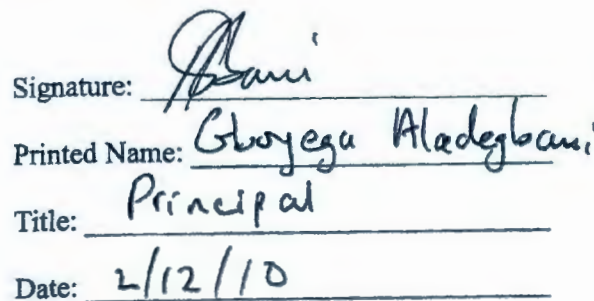 Signature:
Printed Name: Gboyega Aladegbami
Title: Principal
Date: 2/12/10